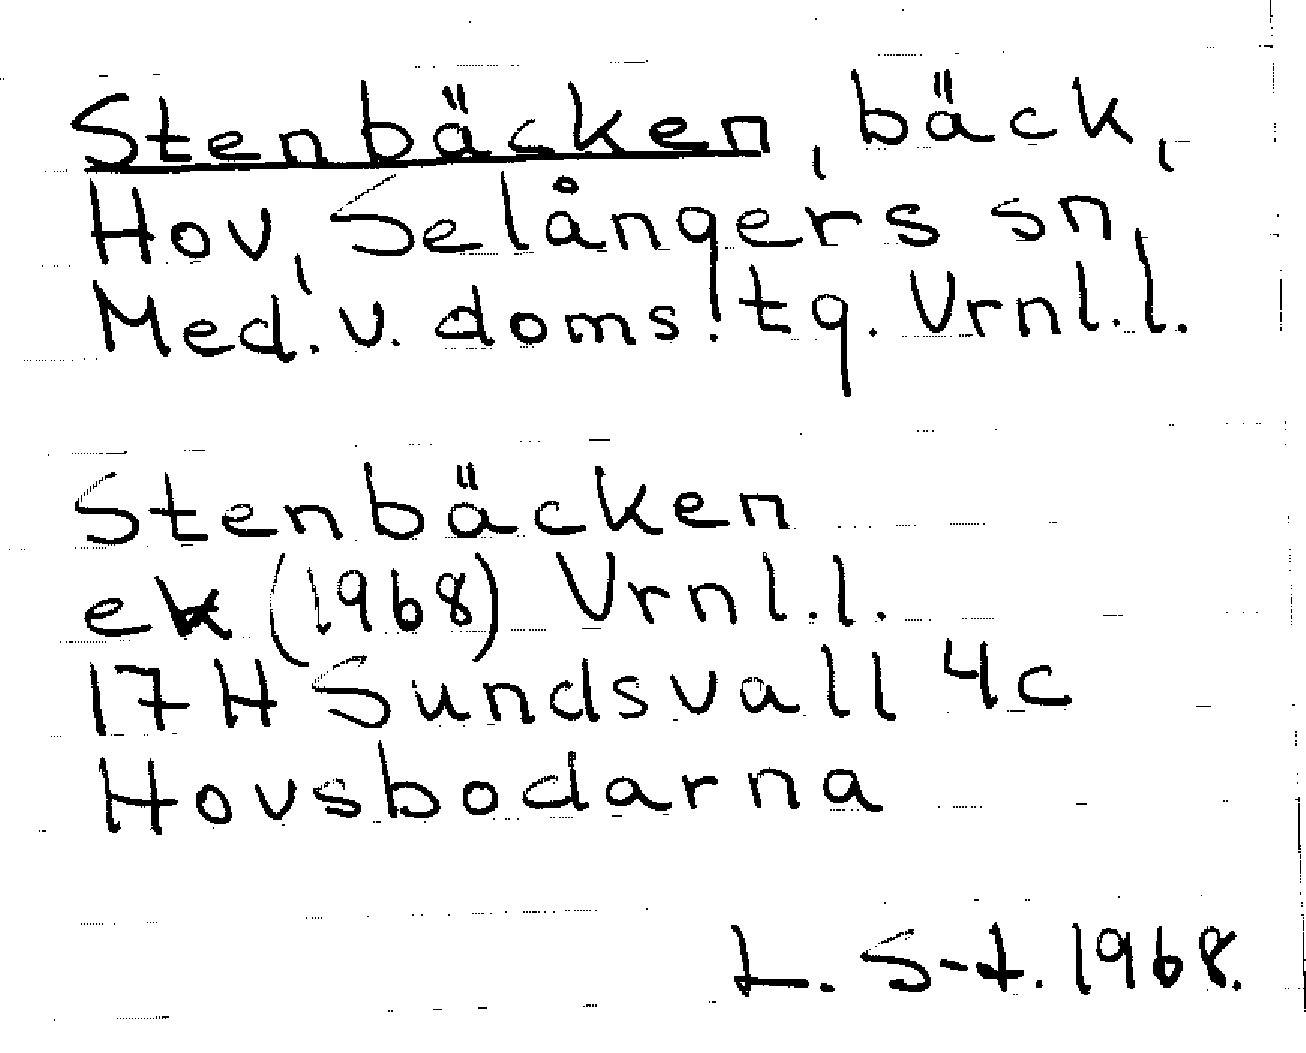 Stenbäcken, bäck,
Hov, Selångers sn,
Med. v. doms! tg. Vrnl.l.
Stenbäcken
ek (1968) Vrnl.l.
17 H Sundsvall 4c
Hovsbodarna
L. S-t. 1968.